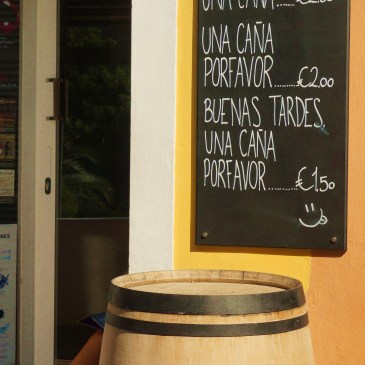 UNA CAÑA
UNA CAÑA
PORFAVOR.......€2,00
BUENAS TARDES,
UNA CAÑA
PORFAVOR.......€1,50